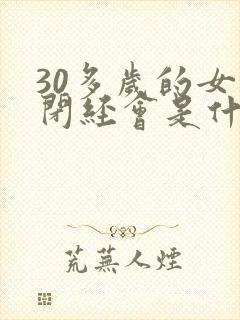 30多歲的女
閉經會是什
荒蕪人煙